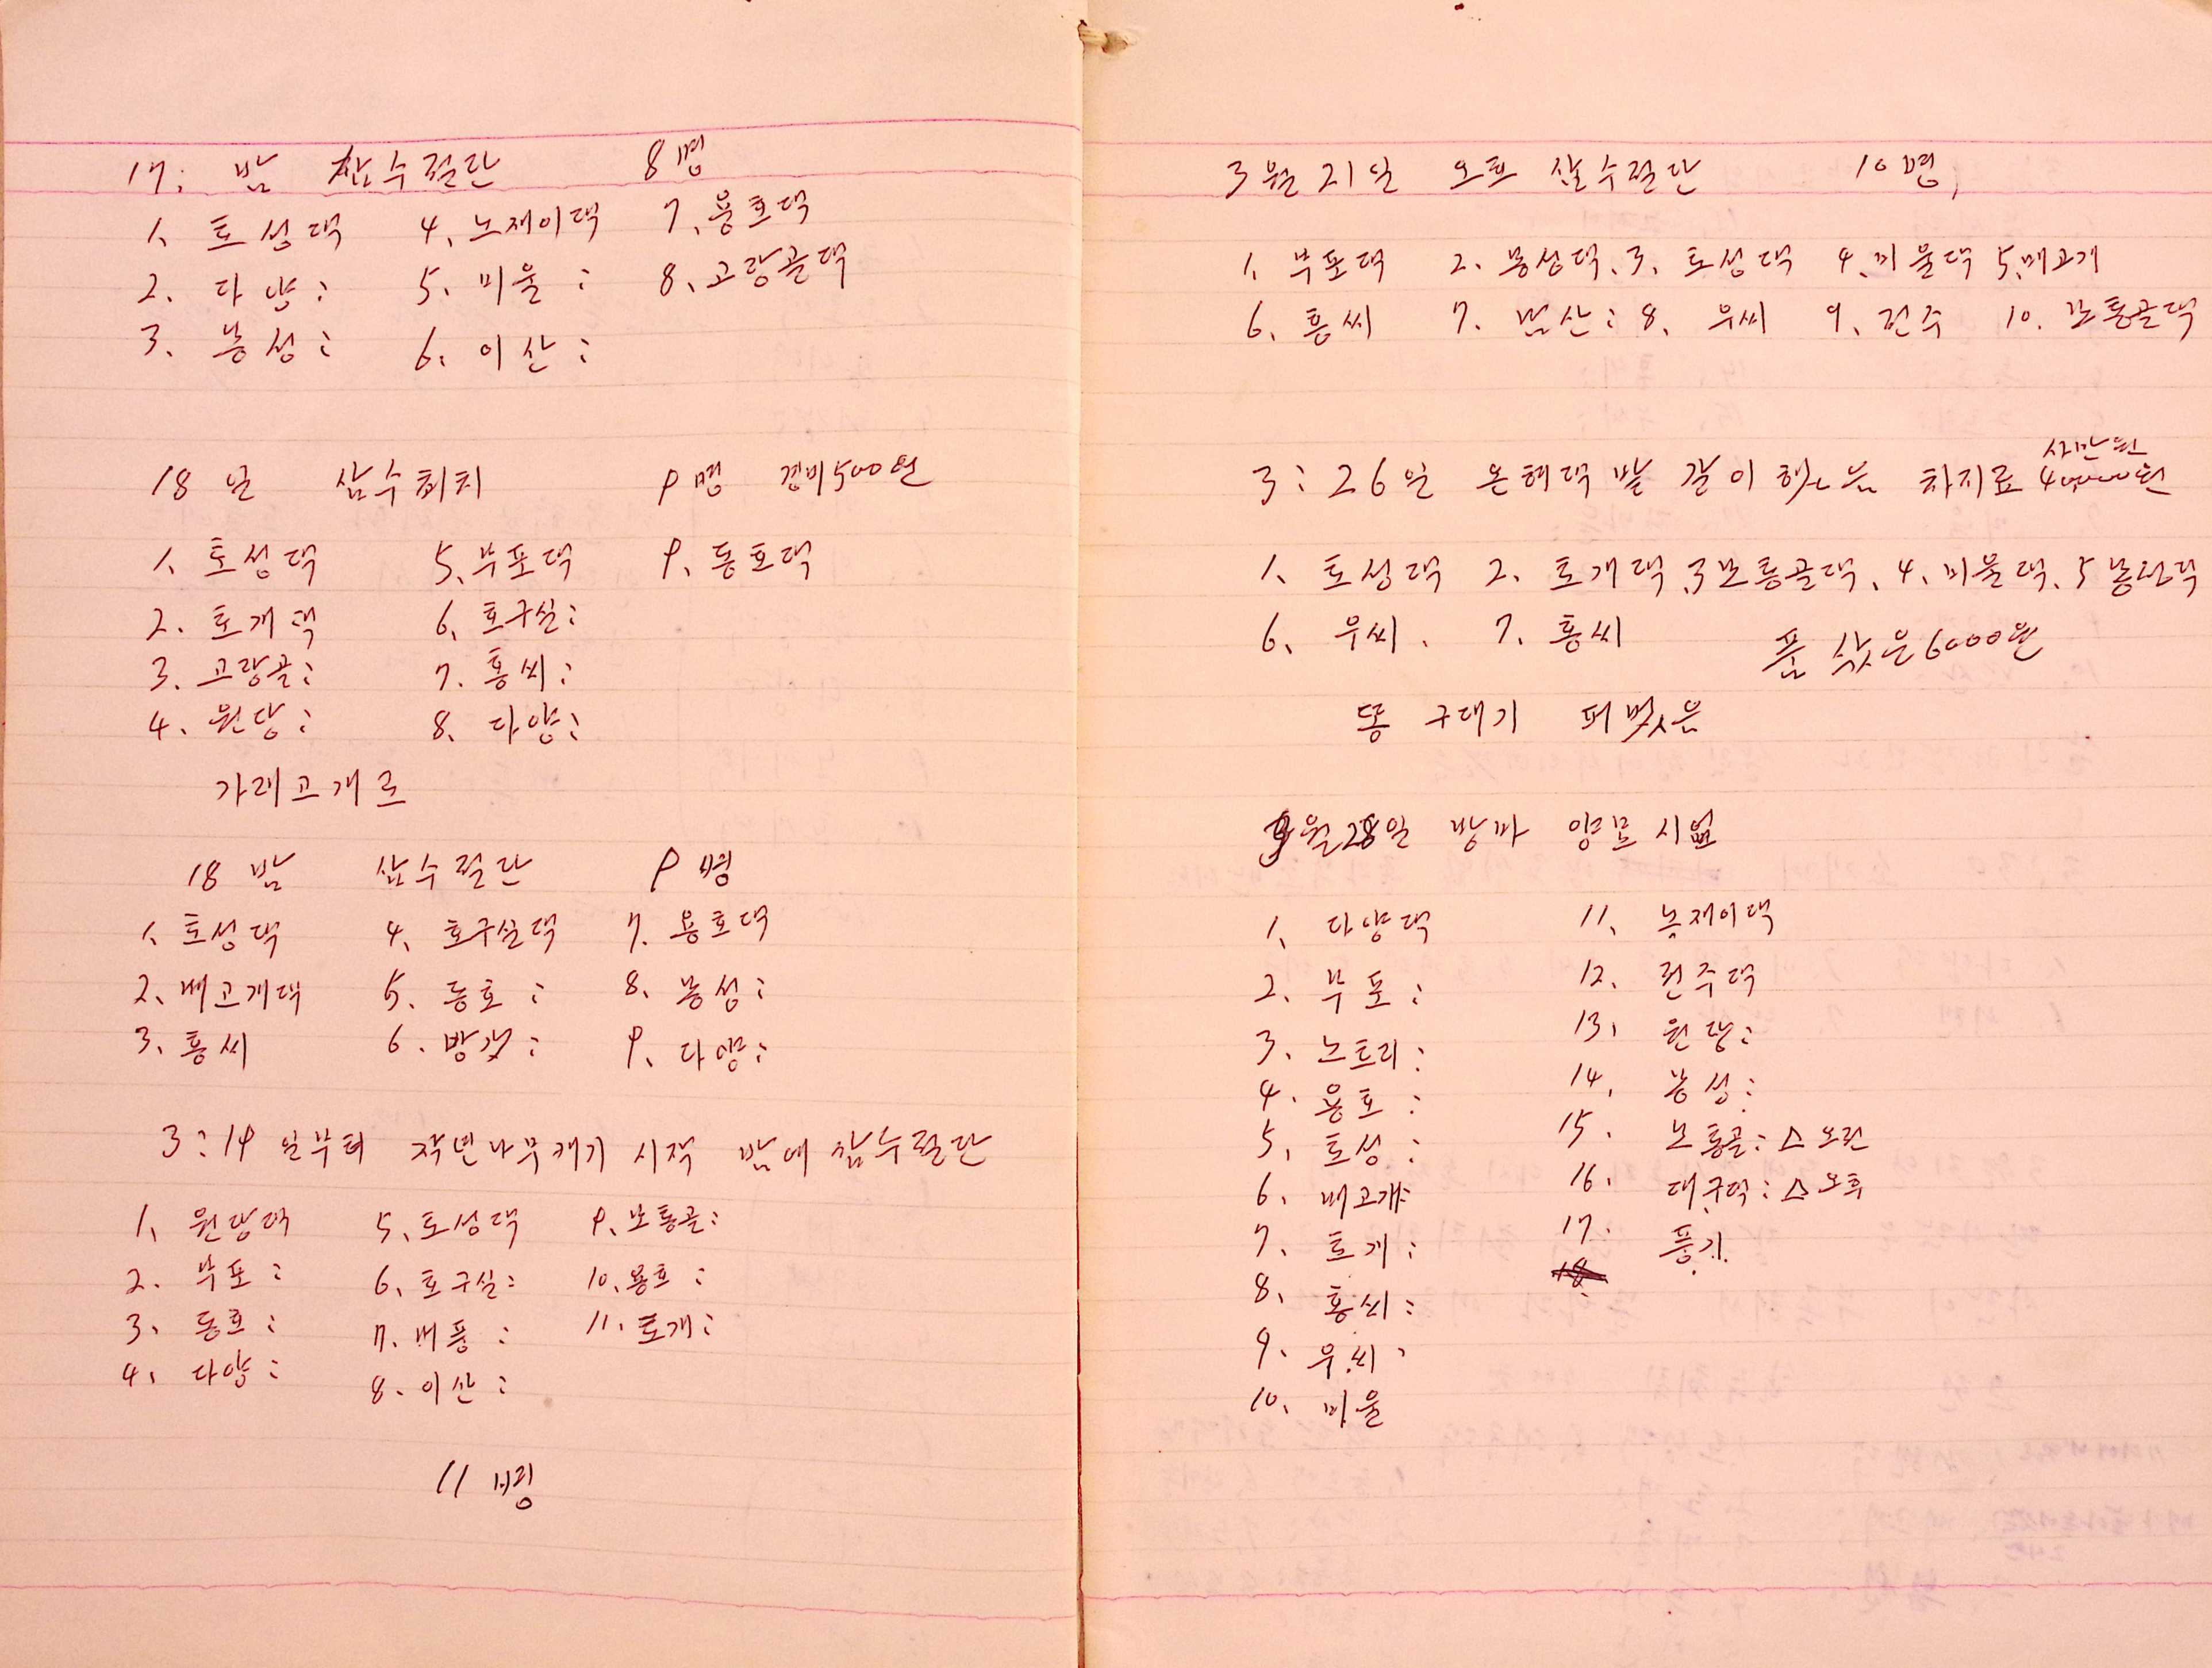 17: 밤 삽수절단 8명
1. 토성댁 4. 노재이댁 7. 용호댁
2. 다양: 5. 미울: 8. 고랑골댁
3. 봉성: 6. 이산:
18일 삽수취치 9명 경비500원
1. 토성댁 5. 부포댁 9. 동호댁
2. 토개댁 6. 호구실:
3. 고랑골: 7. 홍씨:
4. 원당: 8. 다양:
가래고개로
18밤 삽수절단 9명
1. 토성댁 4. 호구실댁 7. 용호댁
2. 배고개댁 5. 동호: 8. 봉성:
3. 홍씨 6. 방갓: 9. 다양:
3:19일부터 작년나무캐기 시작 밤에 삽수절단
1. 원당댁 5. 토성댁 9. 보통골:
2. 부포: 6. 호구실: 10. 용호:
3. 동호: 7. 버풍: 11. 토개:
4. 다양: 8. 이산:
11명
3월21일 오후 삽수절단 10명,
1. 부포댁 2. 봉성댁. 3. 토성댁 4. 미울댁 5. 배고개
6. 홍씨 7. 남산: 8. 우씨 9. 전주 10. 보통골댁
사만원
3:26일 온혜댁 밭 갈이 했음 차지료 40000원
1. 토성댁 2. 토개댁. 3 보통골댁. 4. 미울댁. 5 봉성댁
6. 우씨. 7. 홍씨 품 삯은 6000원
똥 구대기 퍼벘음
3월28일 방마 양묘 시업
1. 다양댁 11. 노재이댁
2. 부포: 12. 전주댁
3. 노트리: 13. 원당:
4. 용호: 14. 봉성:
5. 토성: 15. 보통골: △오전
6. 배고개: 16. 대구댁: △오후
7. 토개: 17. 풍기.
8. 홍씨: 18.
9. 우씨.
10. 미울